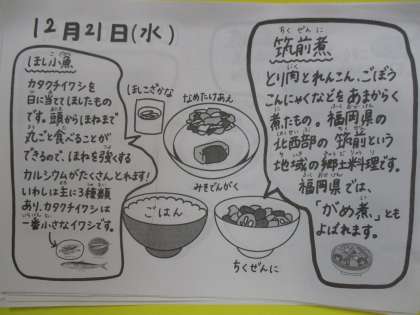 12月21日(水)
ほし小魚
カタクチイワシを
日に当ててほしたもの
です。頭からほねまで
丸ごと食べることが
できるので、ほねを強くする
カルシウムがたくさんとれます!
いわしは主に3種類
あり、カタクチイワシは
一番小さなイワシです。
ほしこざかな
なめたけあえ
みそでんがく
ごはん
ちくぜんに
ちくぜんに
筑前煮
とり肉とれんこん、ごぼう
こんにゃくなどをあまからく
煮たもの。福岡県の
北西部の筑前という
地域の郷土料理です。
福岡県では、
「がめ煮」とも
よばれます。